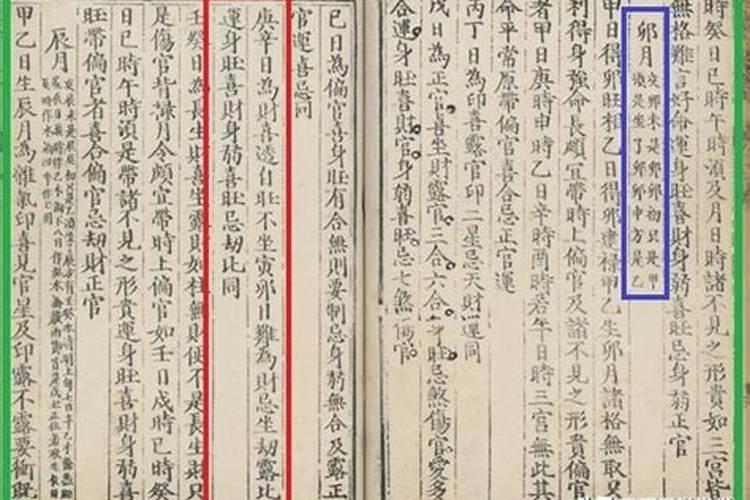 時癸日巳時午時湏及月日時諸不見之形貴如三宮皆
無格難言好命運身旺喜財身弱喜旺忌身弱正官
卯月
甲日得卯旺相乙日得卯建祿甲乙生卯月諸格無取只
利得身強命長頗宜帶時上偏官及諸不見之形貴偏官
者甲日庚時申時乙日辛時酉時若午日時三宮無此其
命平常原帶偏官喜合忌正官運
丙丁日為印喜露官印二星忌天財運同
戊日為正官喜生財露官三合六合年旺忌煞傷官愛多
合運身旺喜財官身弱喜旺忌七煞傷官
巳日為偏官喜身旺有合無則要制忌身弱無合及露正
官運喜忌同
庚辛日為財喜透自旺不坐寅卯日難為財忌坐劫露比
運身旺喜財身弱喜旺忌劫比同
壬癸日為長生財喜生露財如柱無財便不是長生財只
是傷官背祿月令頗宜帶時上偏官如壬日戌時巳時癸
日巳時午時湏是帶諸不見之形貴運身旺喜財身弱喜
旺帶偏官者喜合偏官忌劫財正官
辰月
甲乙日生辰月為雜氣印喜見官星及印露不露要衝既